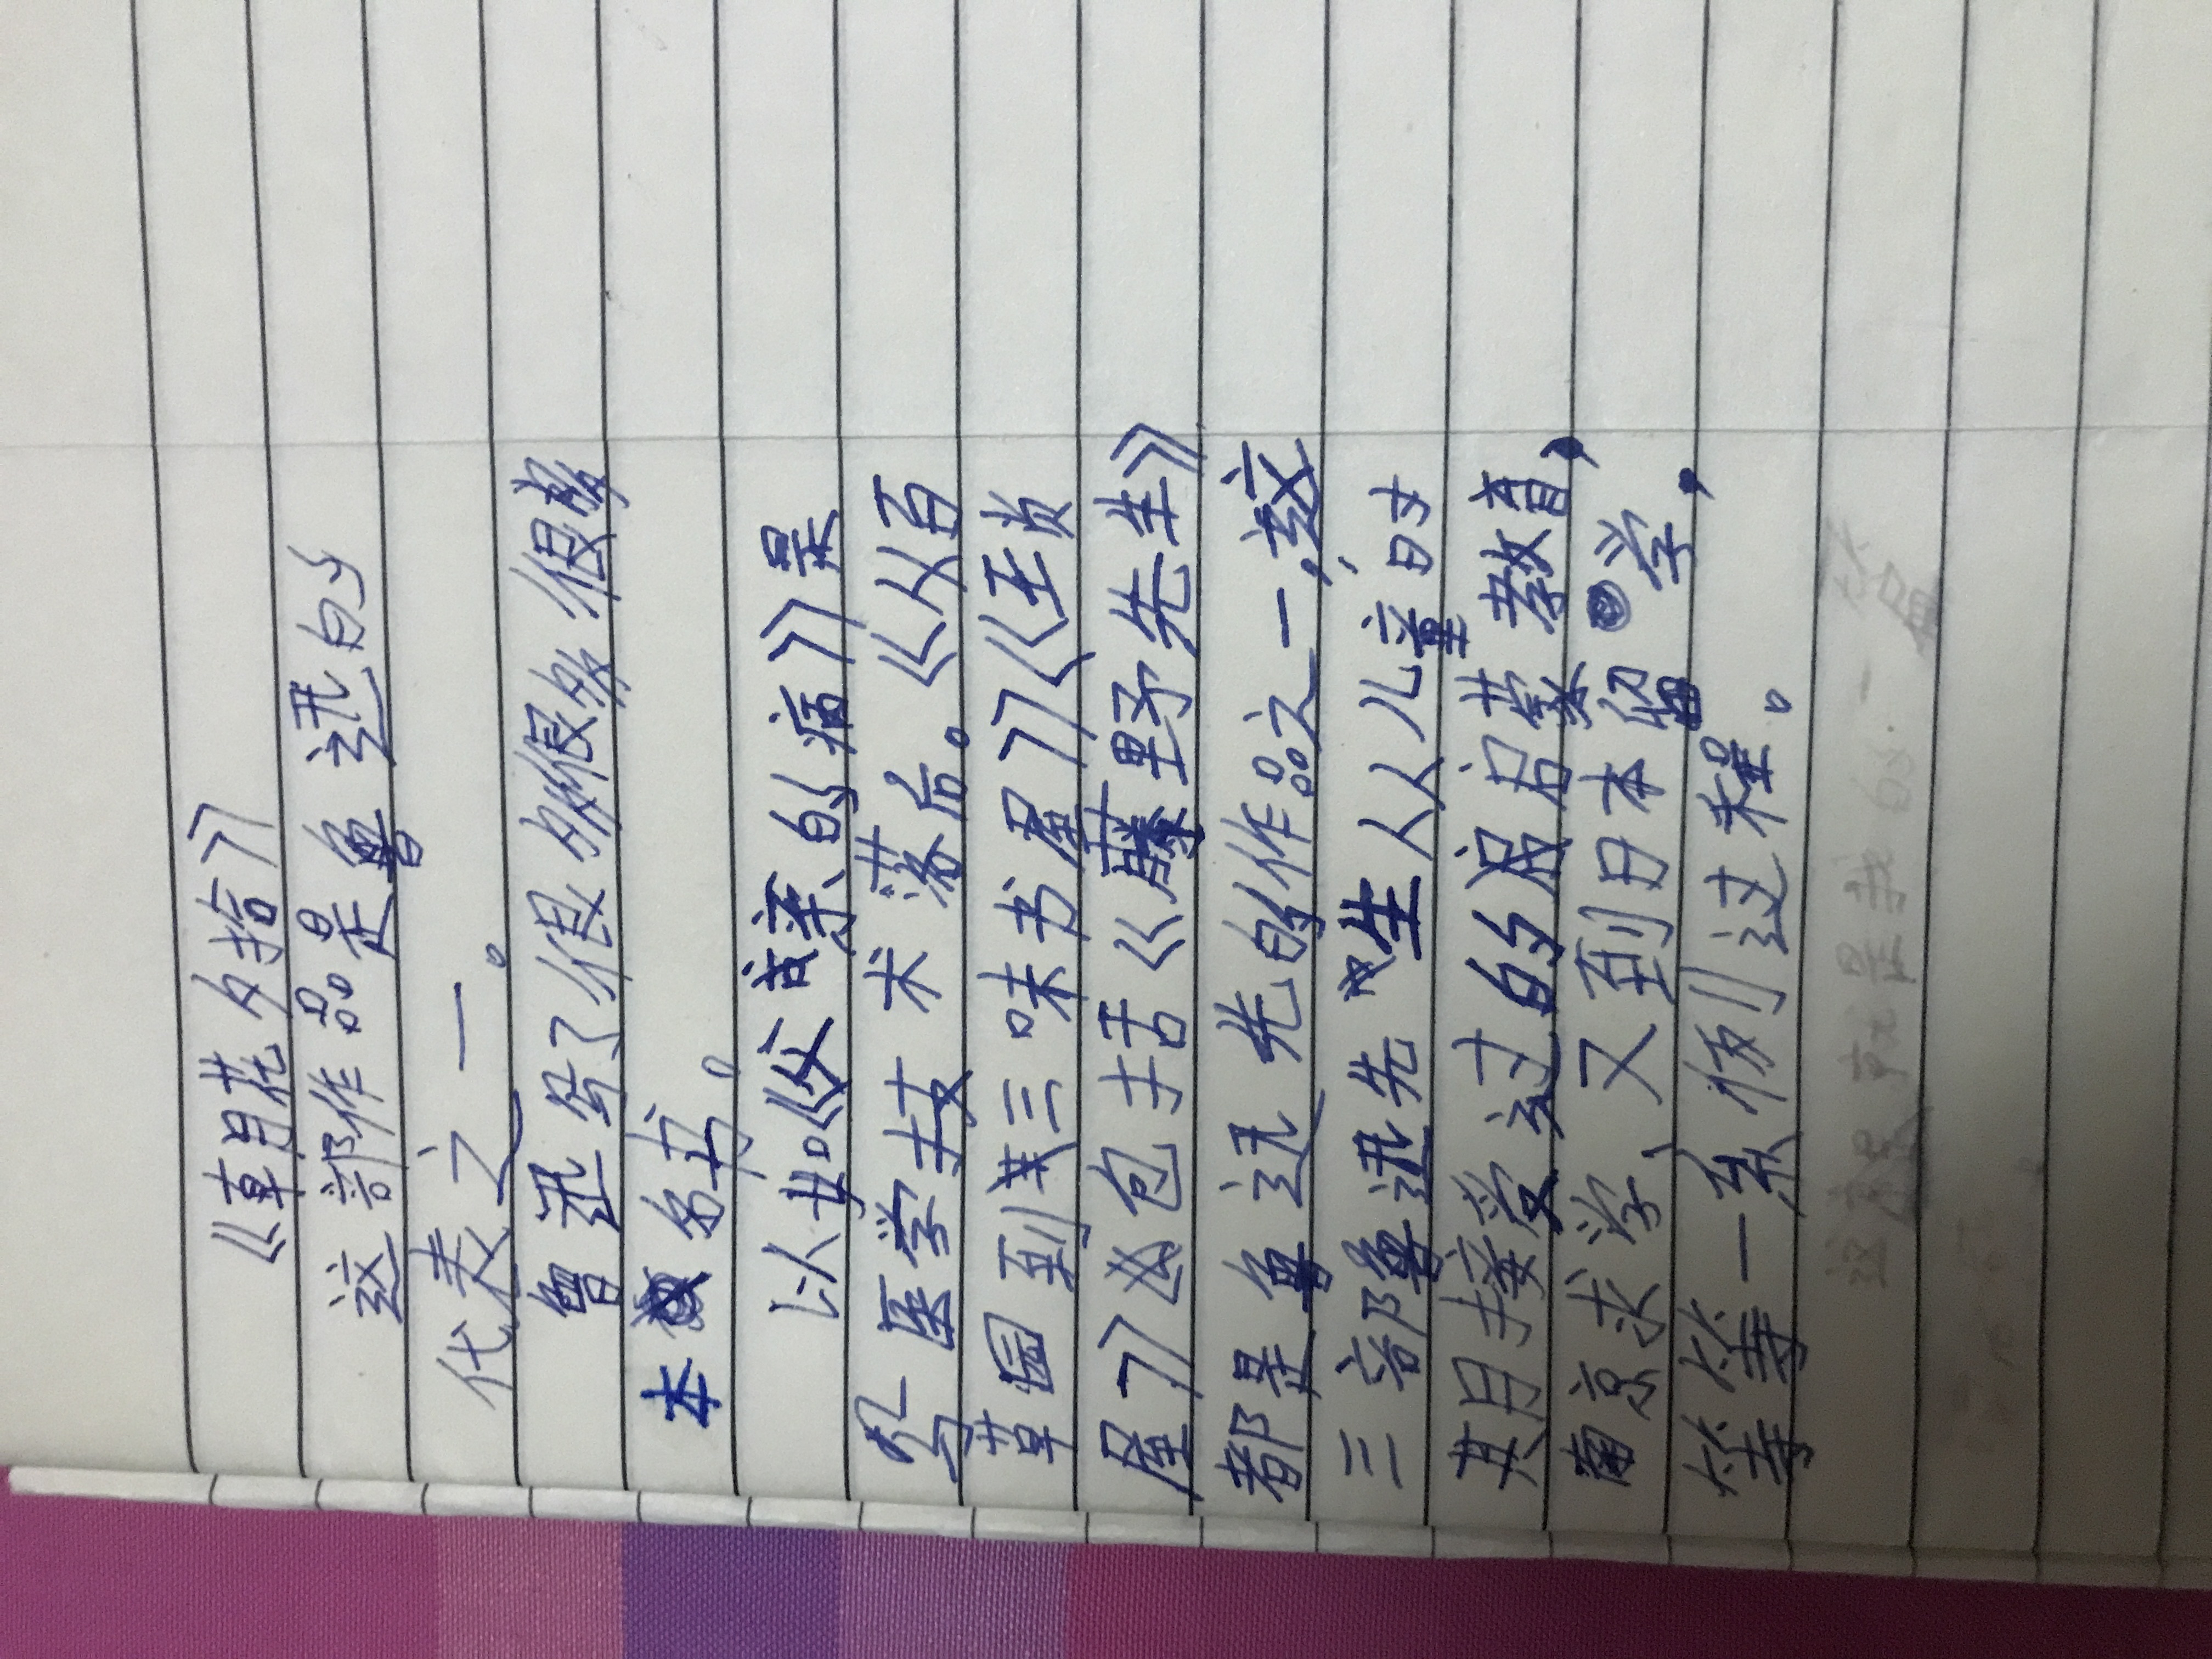 《朝花夕拾》
这部作品是鲁迅的
代表之一。
鲁迅写了很多很多很多
本名书。
以如《父亲的病》是
医学技术落后。《从百
草园到三味书屋》《三味书
屋》包括《藤野先生》
都是鲁迅先的作品之一,这
三部鲁迅先生从人儿童时
期接受过的启蒙教育,
南京求学、又到日本留学,
等等一系列过程。